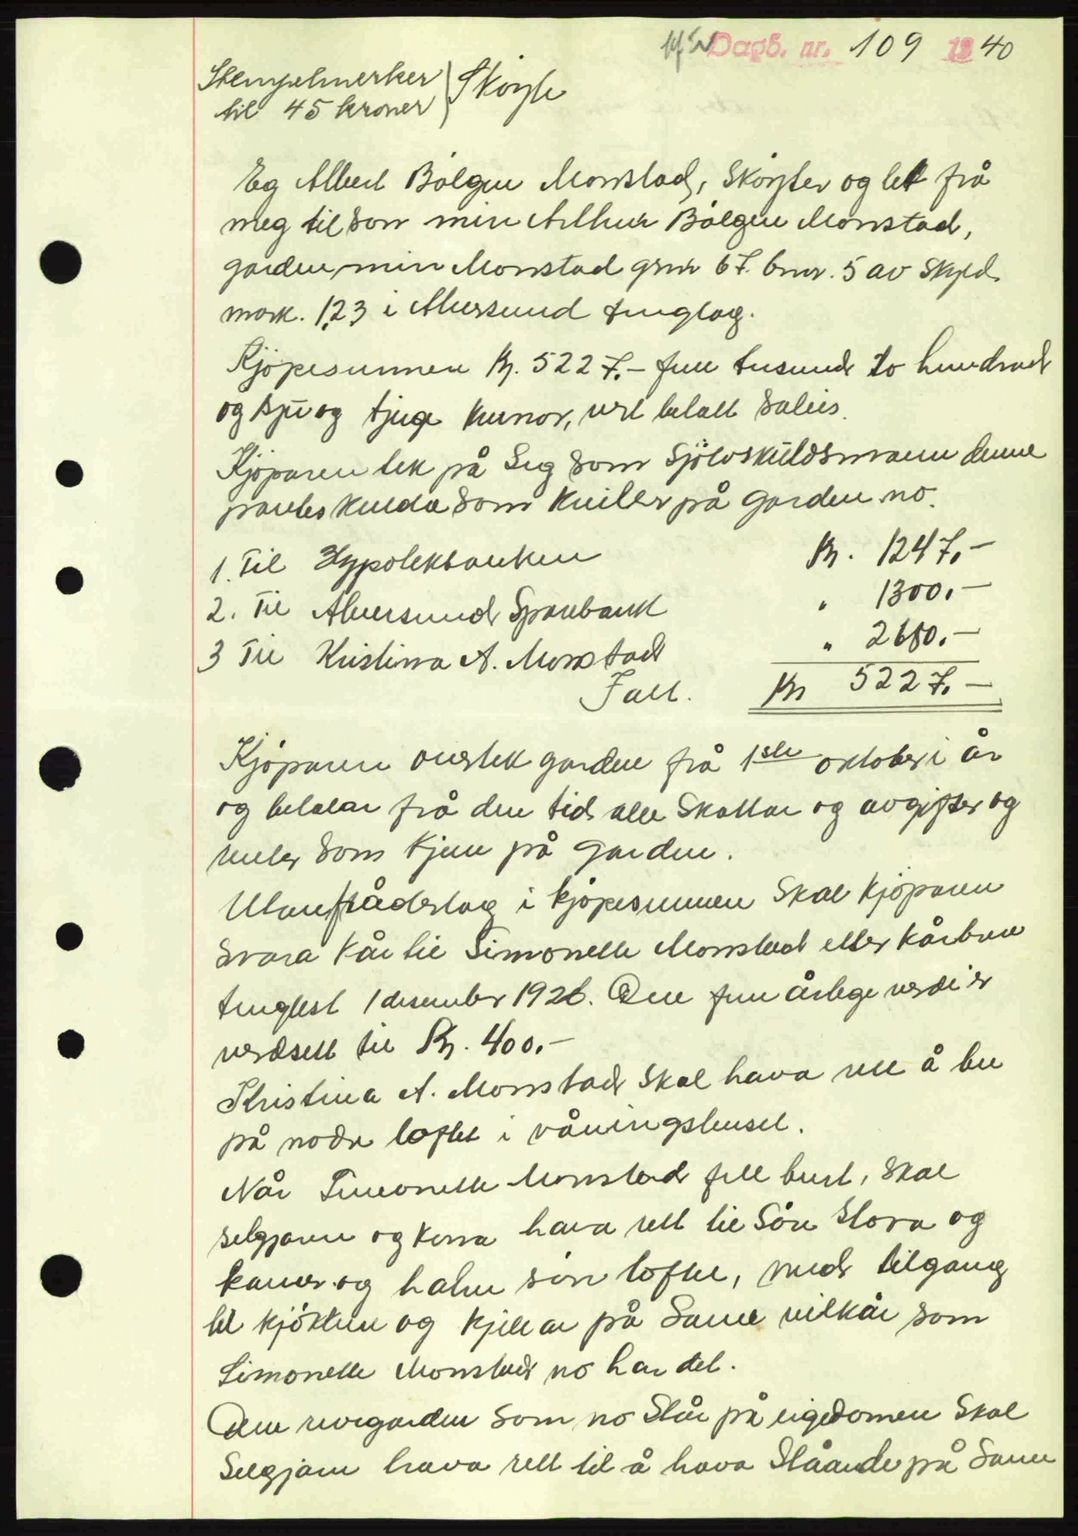 Dagb. nr. 109 1940
Stempelmerker
til 45 kroner
Skøyte
Eg Albert Bølgen Monstad, skøyter og let frå
meg til son min Arthur Bølgen Monstad,
garden min Monstad gnr. 67. bnr. 5 av skyld
mark. 1,23 i Alversund tinglag.
Kjøpesummen kr. 5227.- fem tusund to hundrad
og sju og tjuge kronor, vert betalt soleis.
Kjøparen tek på seg som sjølvskuldsmann denne
panteskulda som kviler på garden no.
1. Til Hypotekbanken kr. 1247.-
2. Til Alversund Sparebank " 1300.-
3 Til Kristina A. Monstad " 2680.-
I alt. kr 5227.-
Kjøparen overtek garden frå 1ste oktober i år
og betalar frå den tid alle skattar og avgifter og
renter som kjem på garden.
Utan frådrag i kjøpesummen skal kjøparen
svara kår til Simonette Monstad etter kårbrev
tinglest 1 desember 1926. Den fem årlege verdi er
verdsett til kr. 400.-
Kristina A. Monstad skal hava rett å bu
på nodre loftet i våningshuset.
Når Simonette Monstad fell burt, skal
selgjaren og kona hava rett til søre stova og
kamer og halve søre loftet, med tilgang
til kjøkken og kjellar på same vilkår som
Simonette Monstad no har det.
Den revegarden som no står på eigedomen skal
Selgjaren hava rett til å hava ståande på same